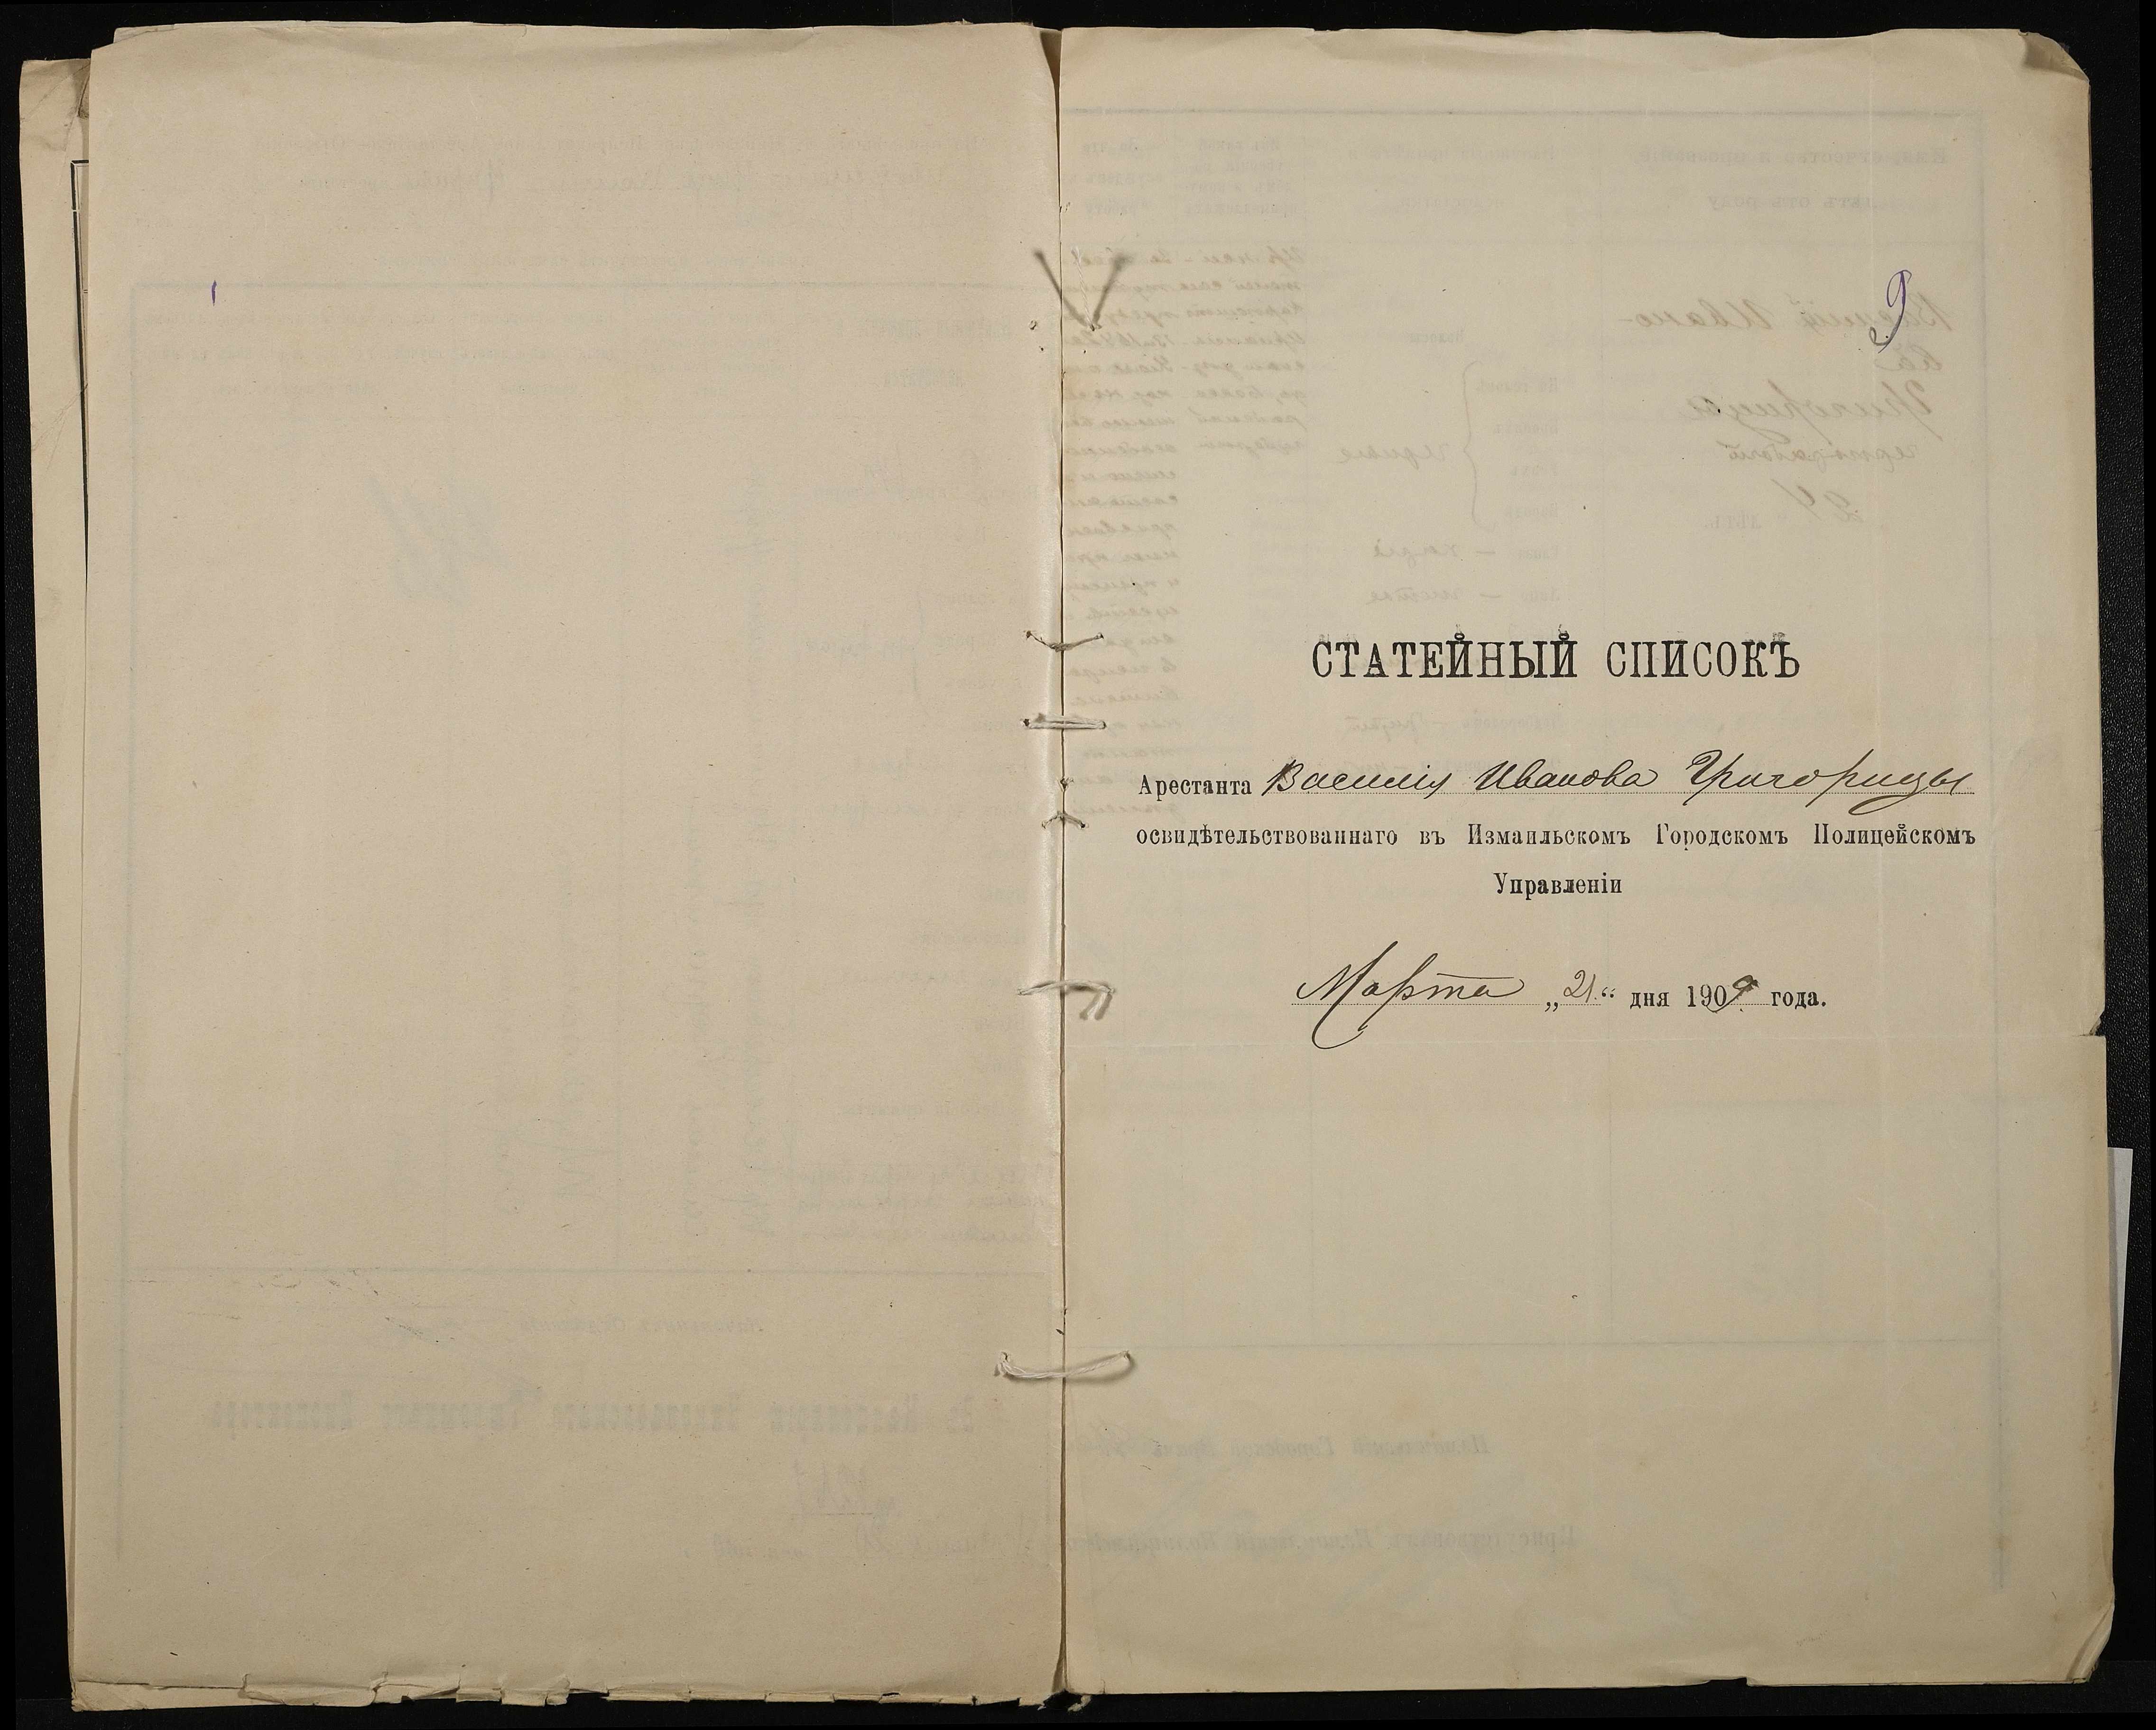 9
СТАТЕЙНЫЙ СПИСОКЪ
Арестанта Василія Иванова Григорицы
освидѣтельствованнаго въ Измаильскомъ Городскомъ Полицейскомъ
Управленіи
Марта „21“ дня 1909 года.